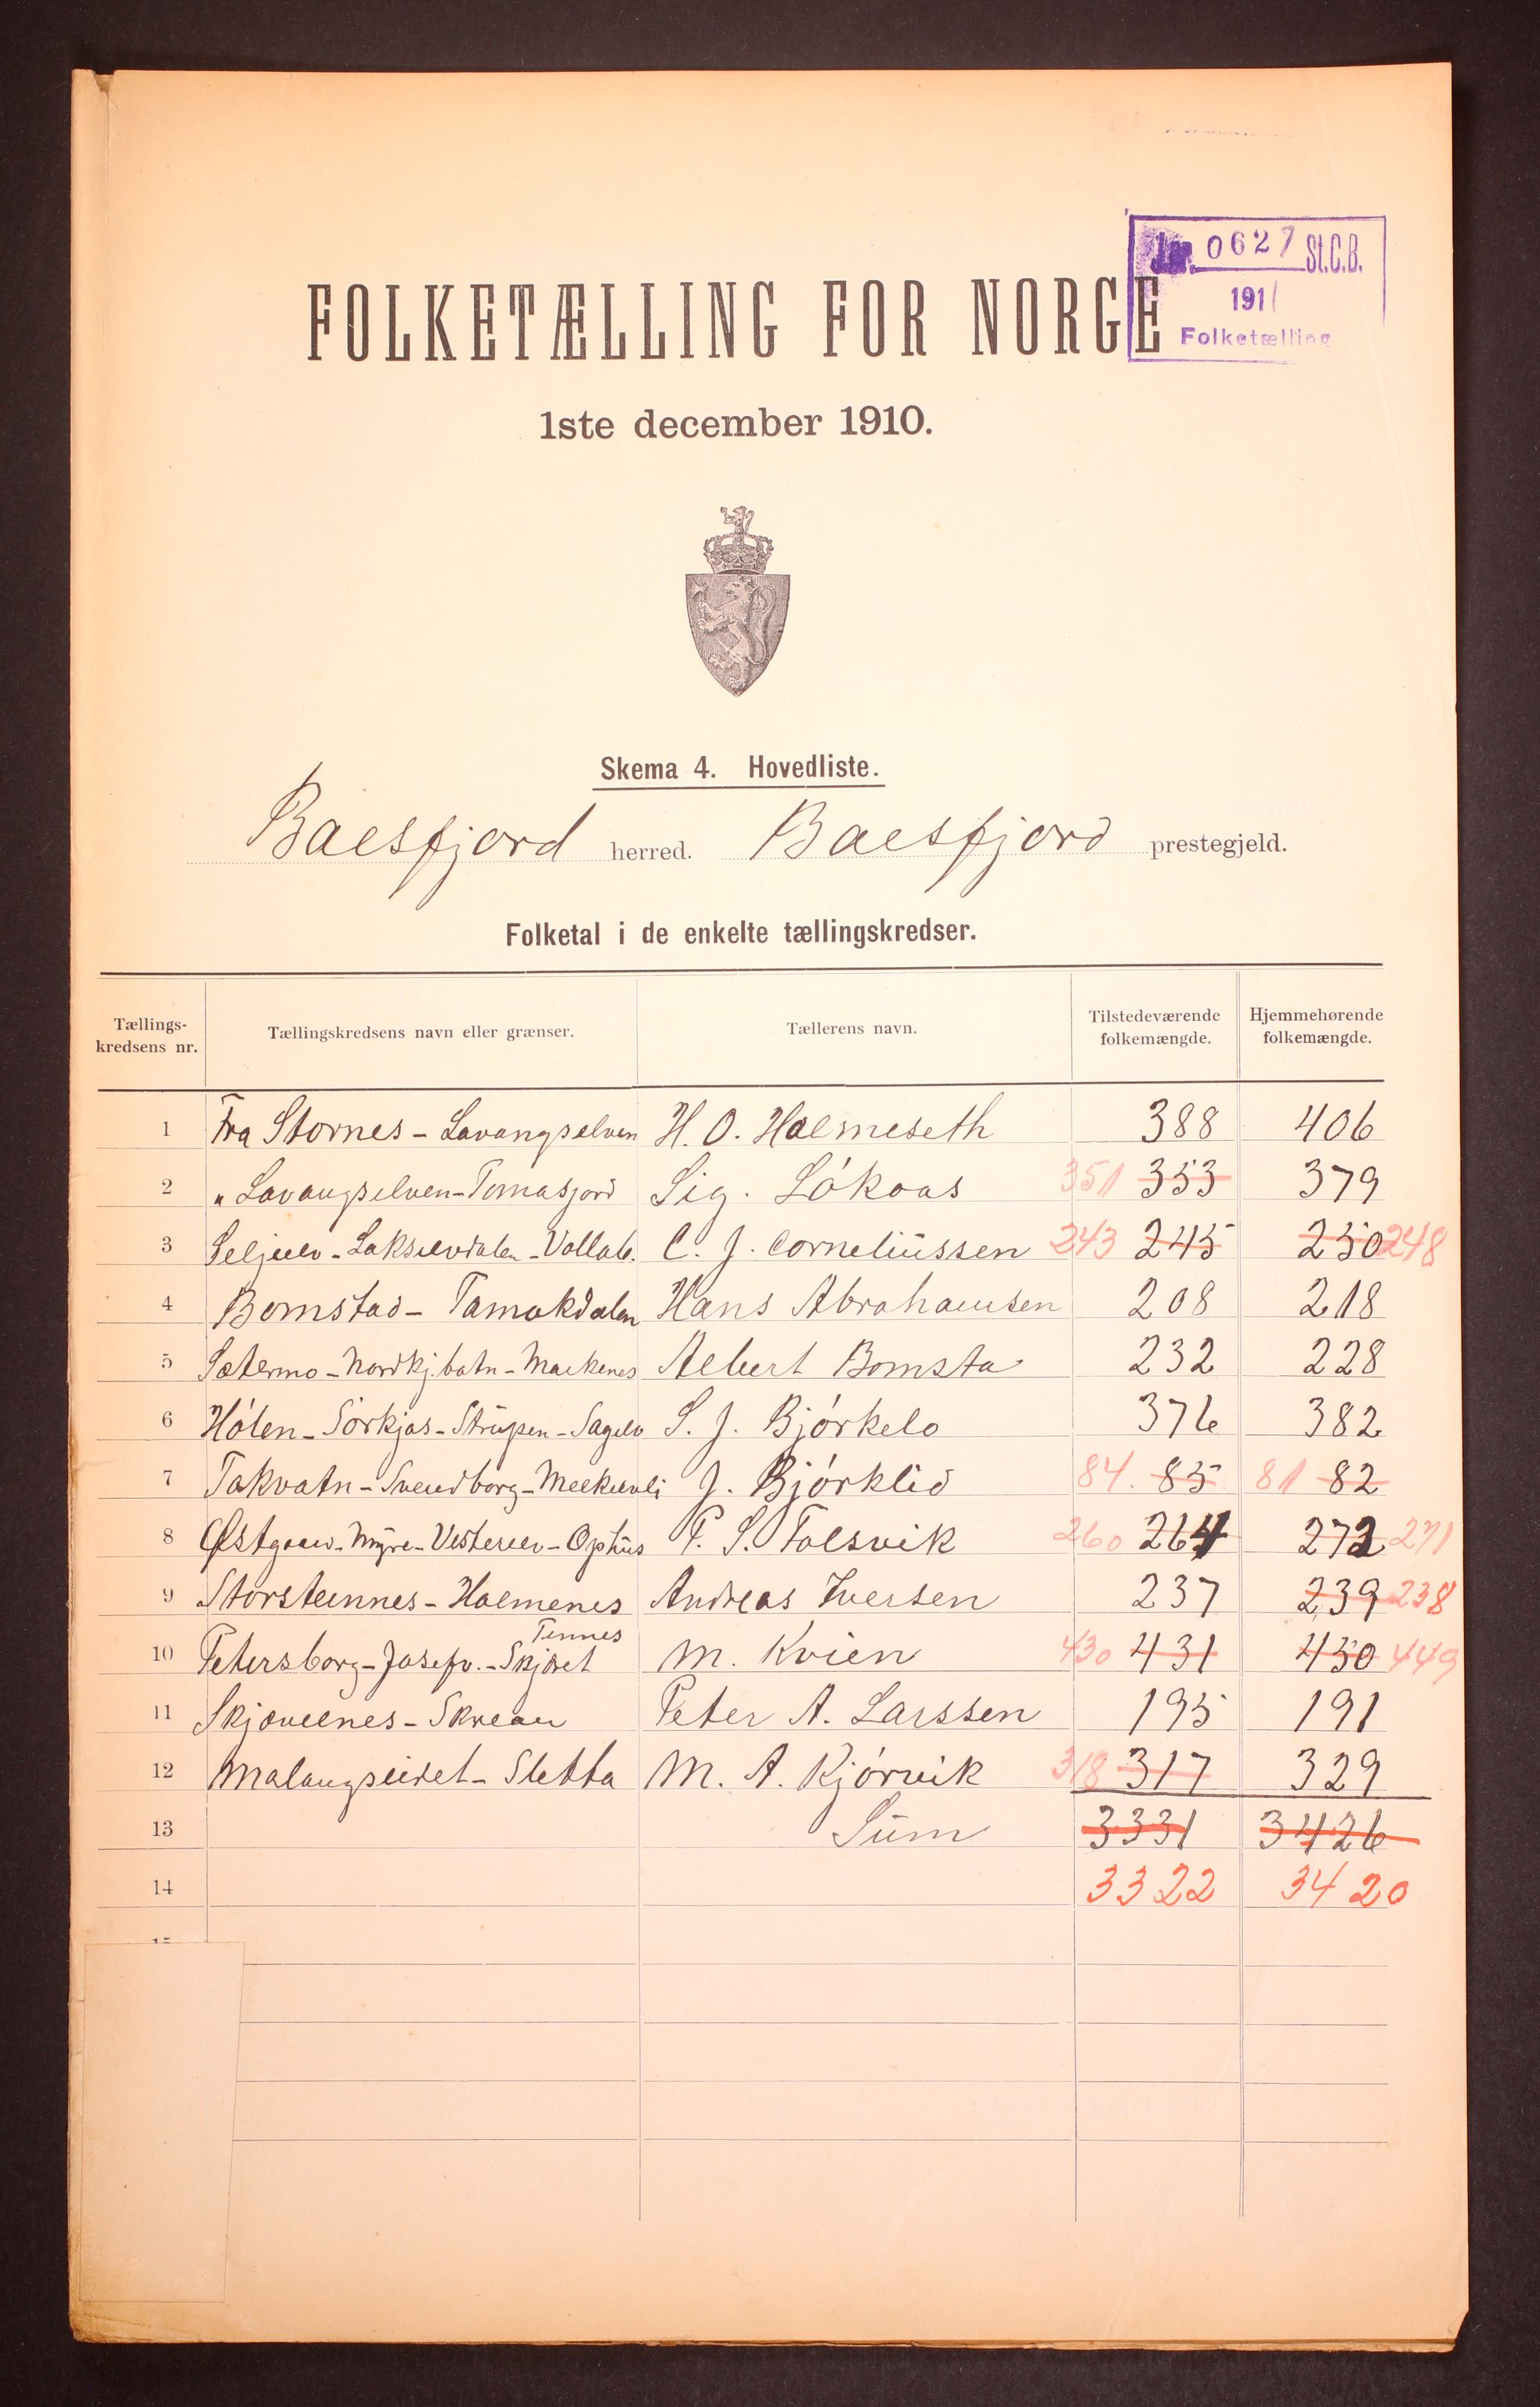 Jnr. 0627 St.C.B.
1911
Folketælling
FOLKETÆLLING FOR NORGE
1ste december 1910.
Skema 4. Hovedliste.
Balsfjord herred. Balsfjord prestegjeld.
Folketal i de enkelte tællingskredser.
Tællings-kredsens nr. Tællingskredsens navn eller grænser. Tællerens navn. Tilstedeværende folkemængde. Hjemmehørende folkemængde.
1 Fra Stornes - Lavangselven H. O. Holmeseth 388 406
2 " Lavangselven - Tomasjord Sig. Lókaas 351 353 379
3 Seljelv - Lakselvdalen - Vollab. C. J. Corneliussen 243 245 250 248
4 Bomstad - Tamokdalen Hans Abrahamsen 208 218
5 Sætermo - Nordkj.botn - Malkenes Albert Bomsta 232 228
6 Hólen - Sörkjos - Strupen - Sagelv S. J. Bjórkelo 376 382
7 Takvatn - Svendborg - J. Bjórklid 84. 85 81 82
8 Østgaar - Myre - Vesterelv - Ophus P. S. Tolsvik 260 264 272 271
9 Storsteinnes - Holmenes Andreas Iversen 237 239 238
Tennes
10 Petersborg - Josefv. - Skjæret M. Kvien 430 431 450 449
11 Skjævelnes - Peter A. Larssen 195 191
12 Malangseidet - Sletta M. A. Kjórvik 318 317 329
13 Sum 3331 3426
14 3322 3420